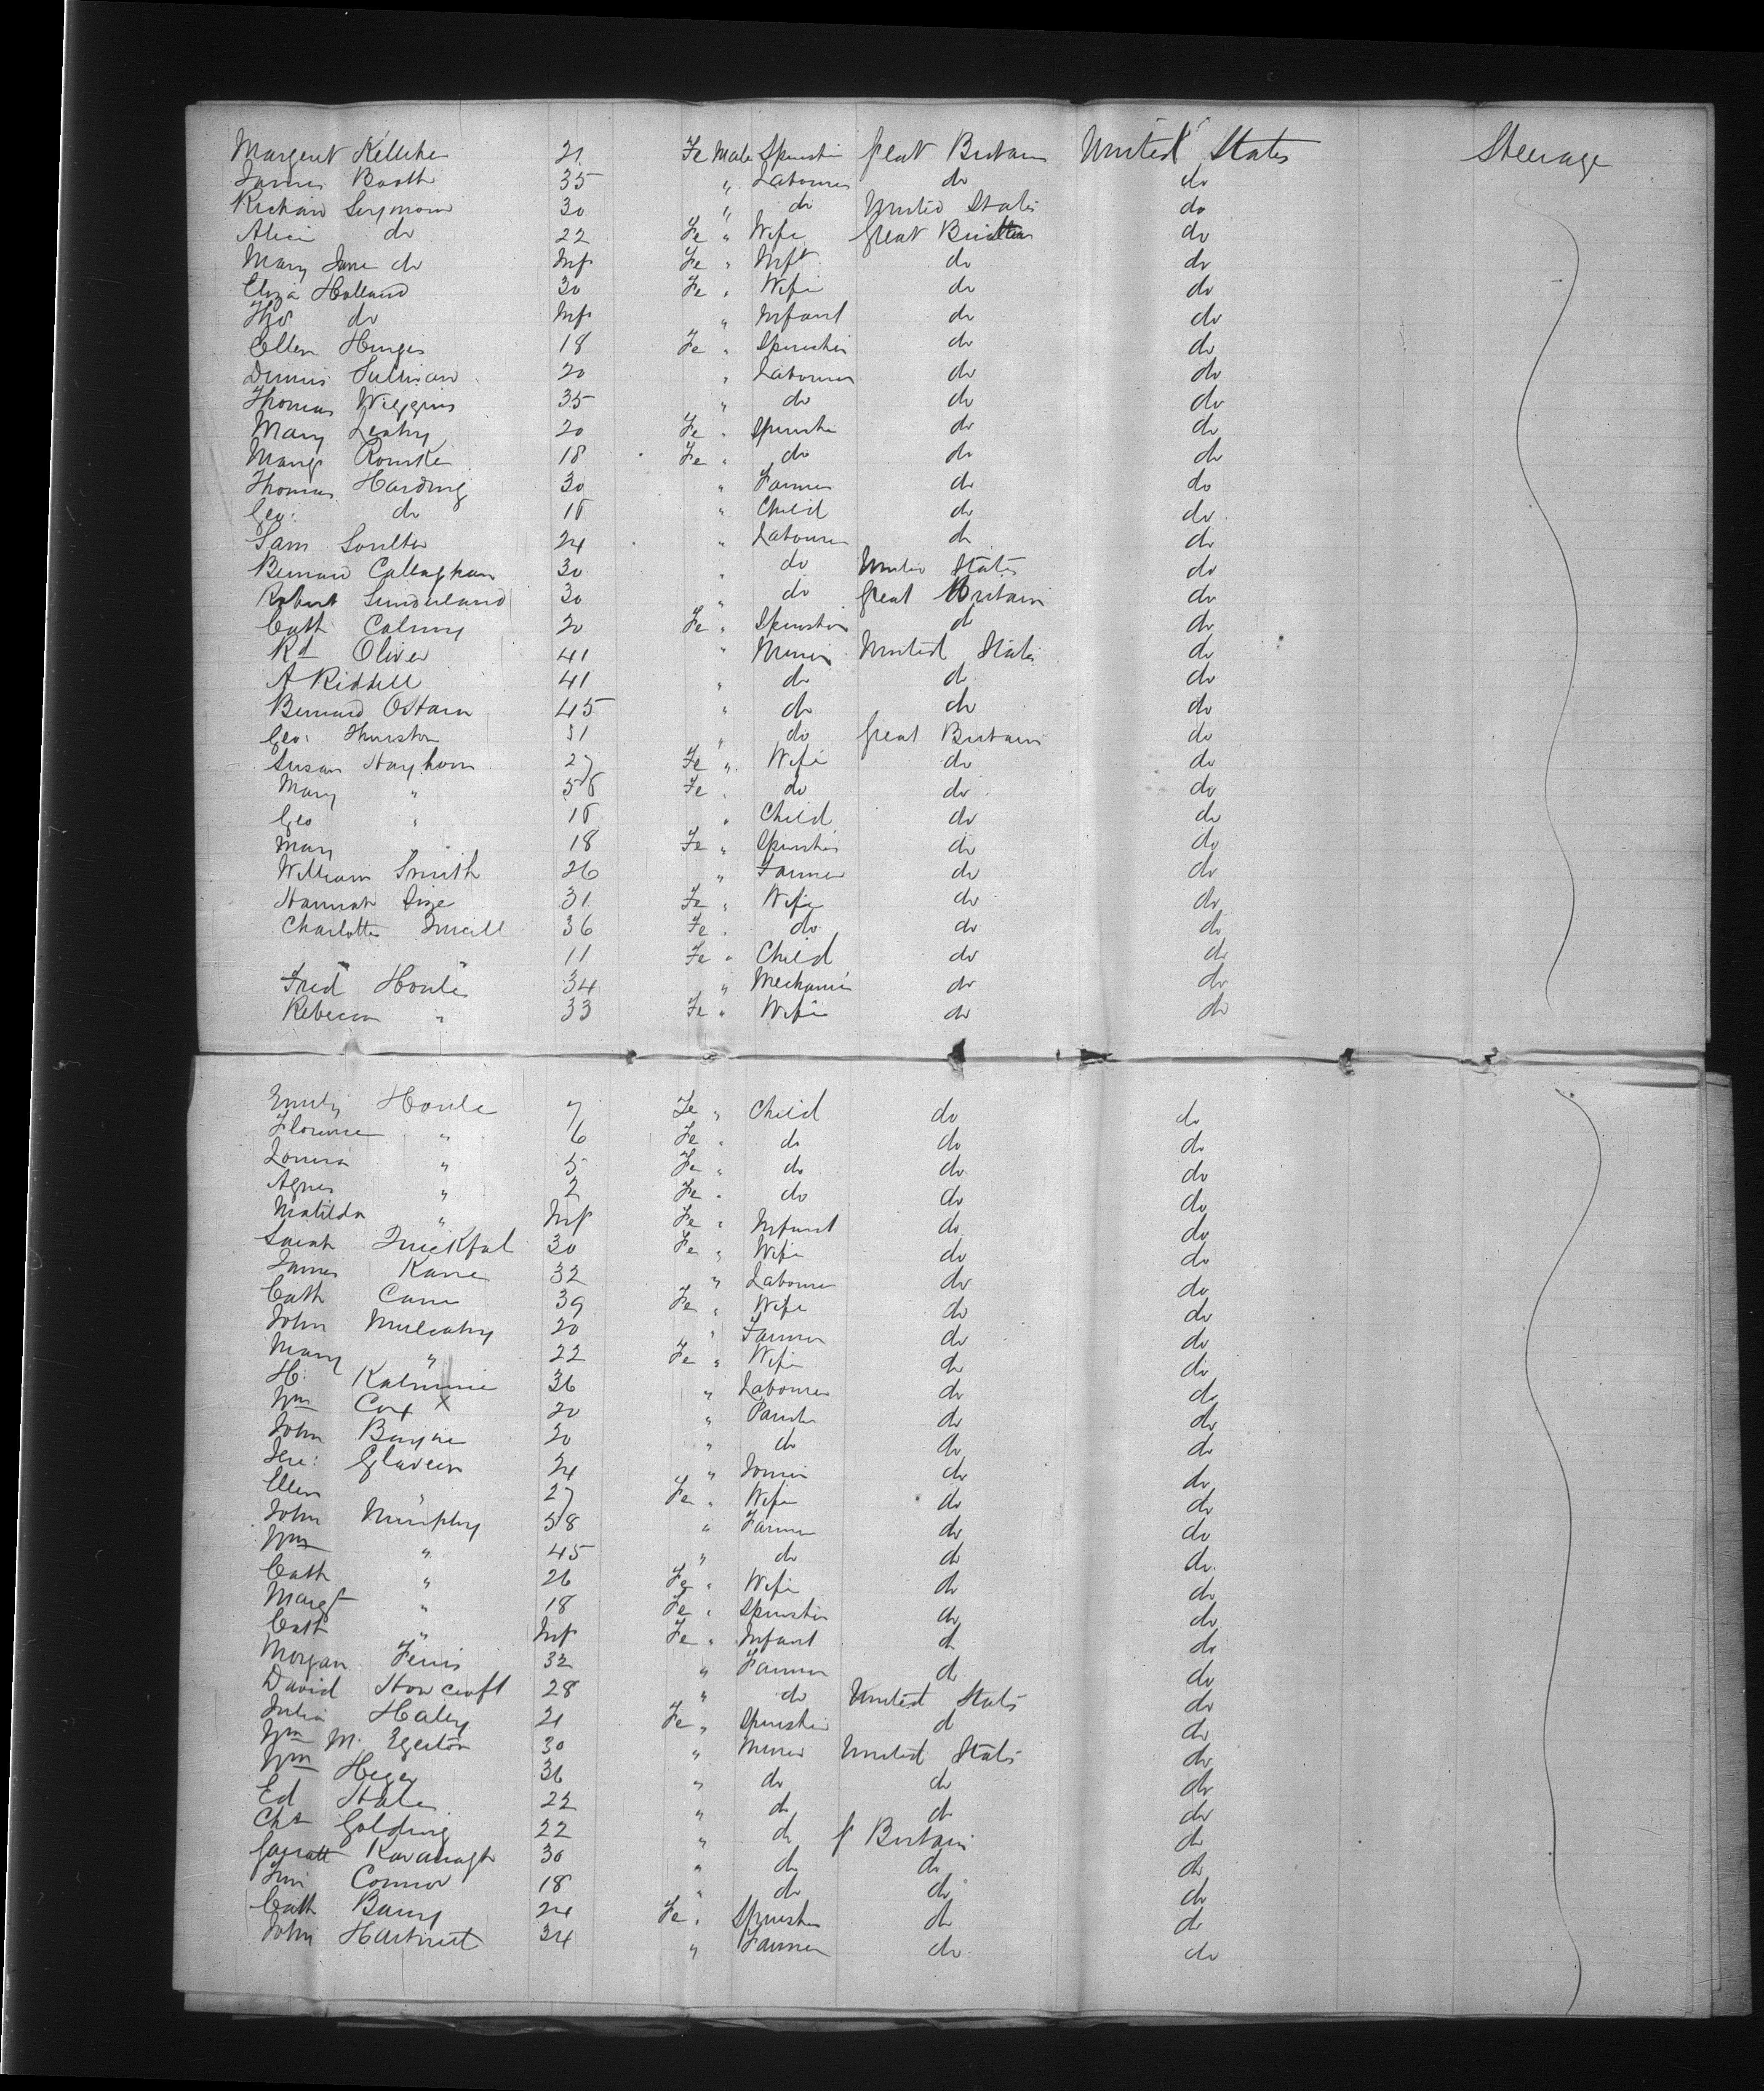 Margeret Kelliher 21 Fe Male Spinster Great Britain United States Steerage
James Booth 35 " Labourer do do
Richard Seymour 30 " do United States do
Alice do 22 Fe " Wife Great Britain do
Mary Jane do Inf Fe " Inft do do
Eliza Holland 30 Fe " Wife do do
Thos do Inf " Infant do do
Ellen Hurges 18 Fe " Spinster do do
Dennis Sullivan 20 " Labourer do do
Thomas Wiggins 35 " do do do
Mary Leahy 20 Fe " Spinster do do
Margt Rourke 18 Fe " do do do
Thomas Harding 30 " Farmer do do
Geo: do 10 " Child do do
Sam Soulter 24 " Labourer do do
Bernard Callaghan 30 " do United States do
Robert Sunderland 30 " do Great Britain do
Cath 20 Fe " Spinster do do
Rd Oliver 41 " Miner United States do
A Riddell 41 " do do do
Bernard OHara 45 " do do do
Geo: Thurston 31 " do Great Britain do
Susan Hayhow 27 Fe " Wife do do
Mary " 58 Fe " do do do
Geo " 10 " Child do do
Mary " 18 Fe " Spinster do do
William Smith 26 " Farmer do do
Hannah Size 31 Fe " Wife do do
Charlotte 36 Fe " do do do
" " 11 Fe " Child do do
Fred Houle 34 " Mechanic do do
Rebecca " 33 Fe " Wife do do
Emily Houle 7 Fe " Child do do
Florence " 6 Fe " do do do
Louisa " 5 Fe " do do do
Agnes " 2 Fe " do do do
Matilda " Inf Fe " Infant do do
Sarah Quickfal 30 Fe " Wife do do
James Kane 32 " Labourer do do
Cath Cane 39 Fe " Wife do do
John Mulcahy 20 " Farmer do do
Mary " 22 Fe " Wife do do
H. 36 " Labourer do do
Wm Cox X 20 " Painter do do
John Bayne 20 " do do do
Jere: Glaveen 24 " Joiner do do
Ellen " 27 Fe " Wife do do
John Murphy 58 " Farmer do do
Wm " 45 " do do do
Cath " 26 Fe " Wife do do
Margt " 18 Fe " Spinster do do
Cath " Inf Fe " Infant do do
Morgan Ferris 32 " Farmer do do
David Howcroft 28 " do United States do
Julia Haley 21 Fe " Spinster do do
Wm M. Egerton 30 " Miner United States do
Wm Heger 36 " do do do
Ed Hale 22 " do do do
Chs Golding 22 " do G Britain do
Garratt Kavanagh 30 " do do do
Jim Connor 18 " do do do
Cath Barry 24 Fe " Spinster do do
John Hartnett 34 " Farmer do do